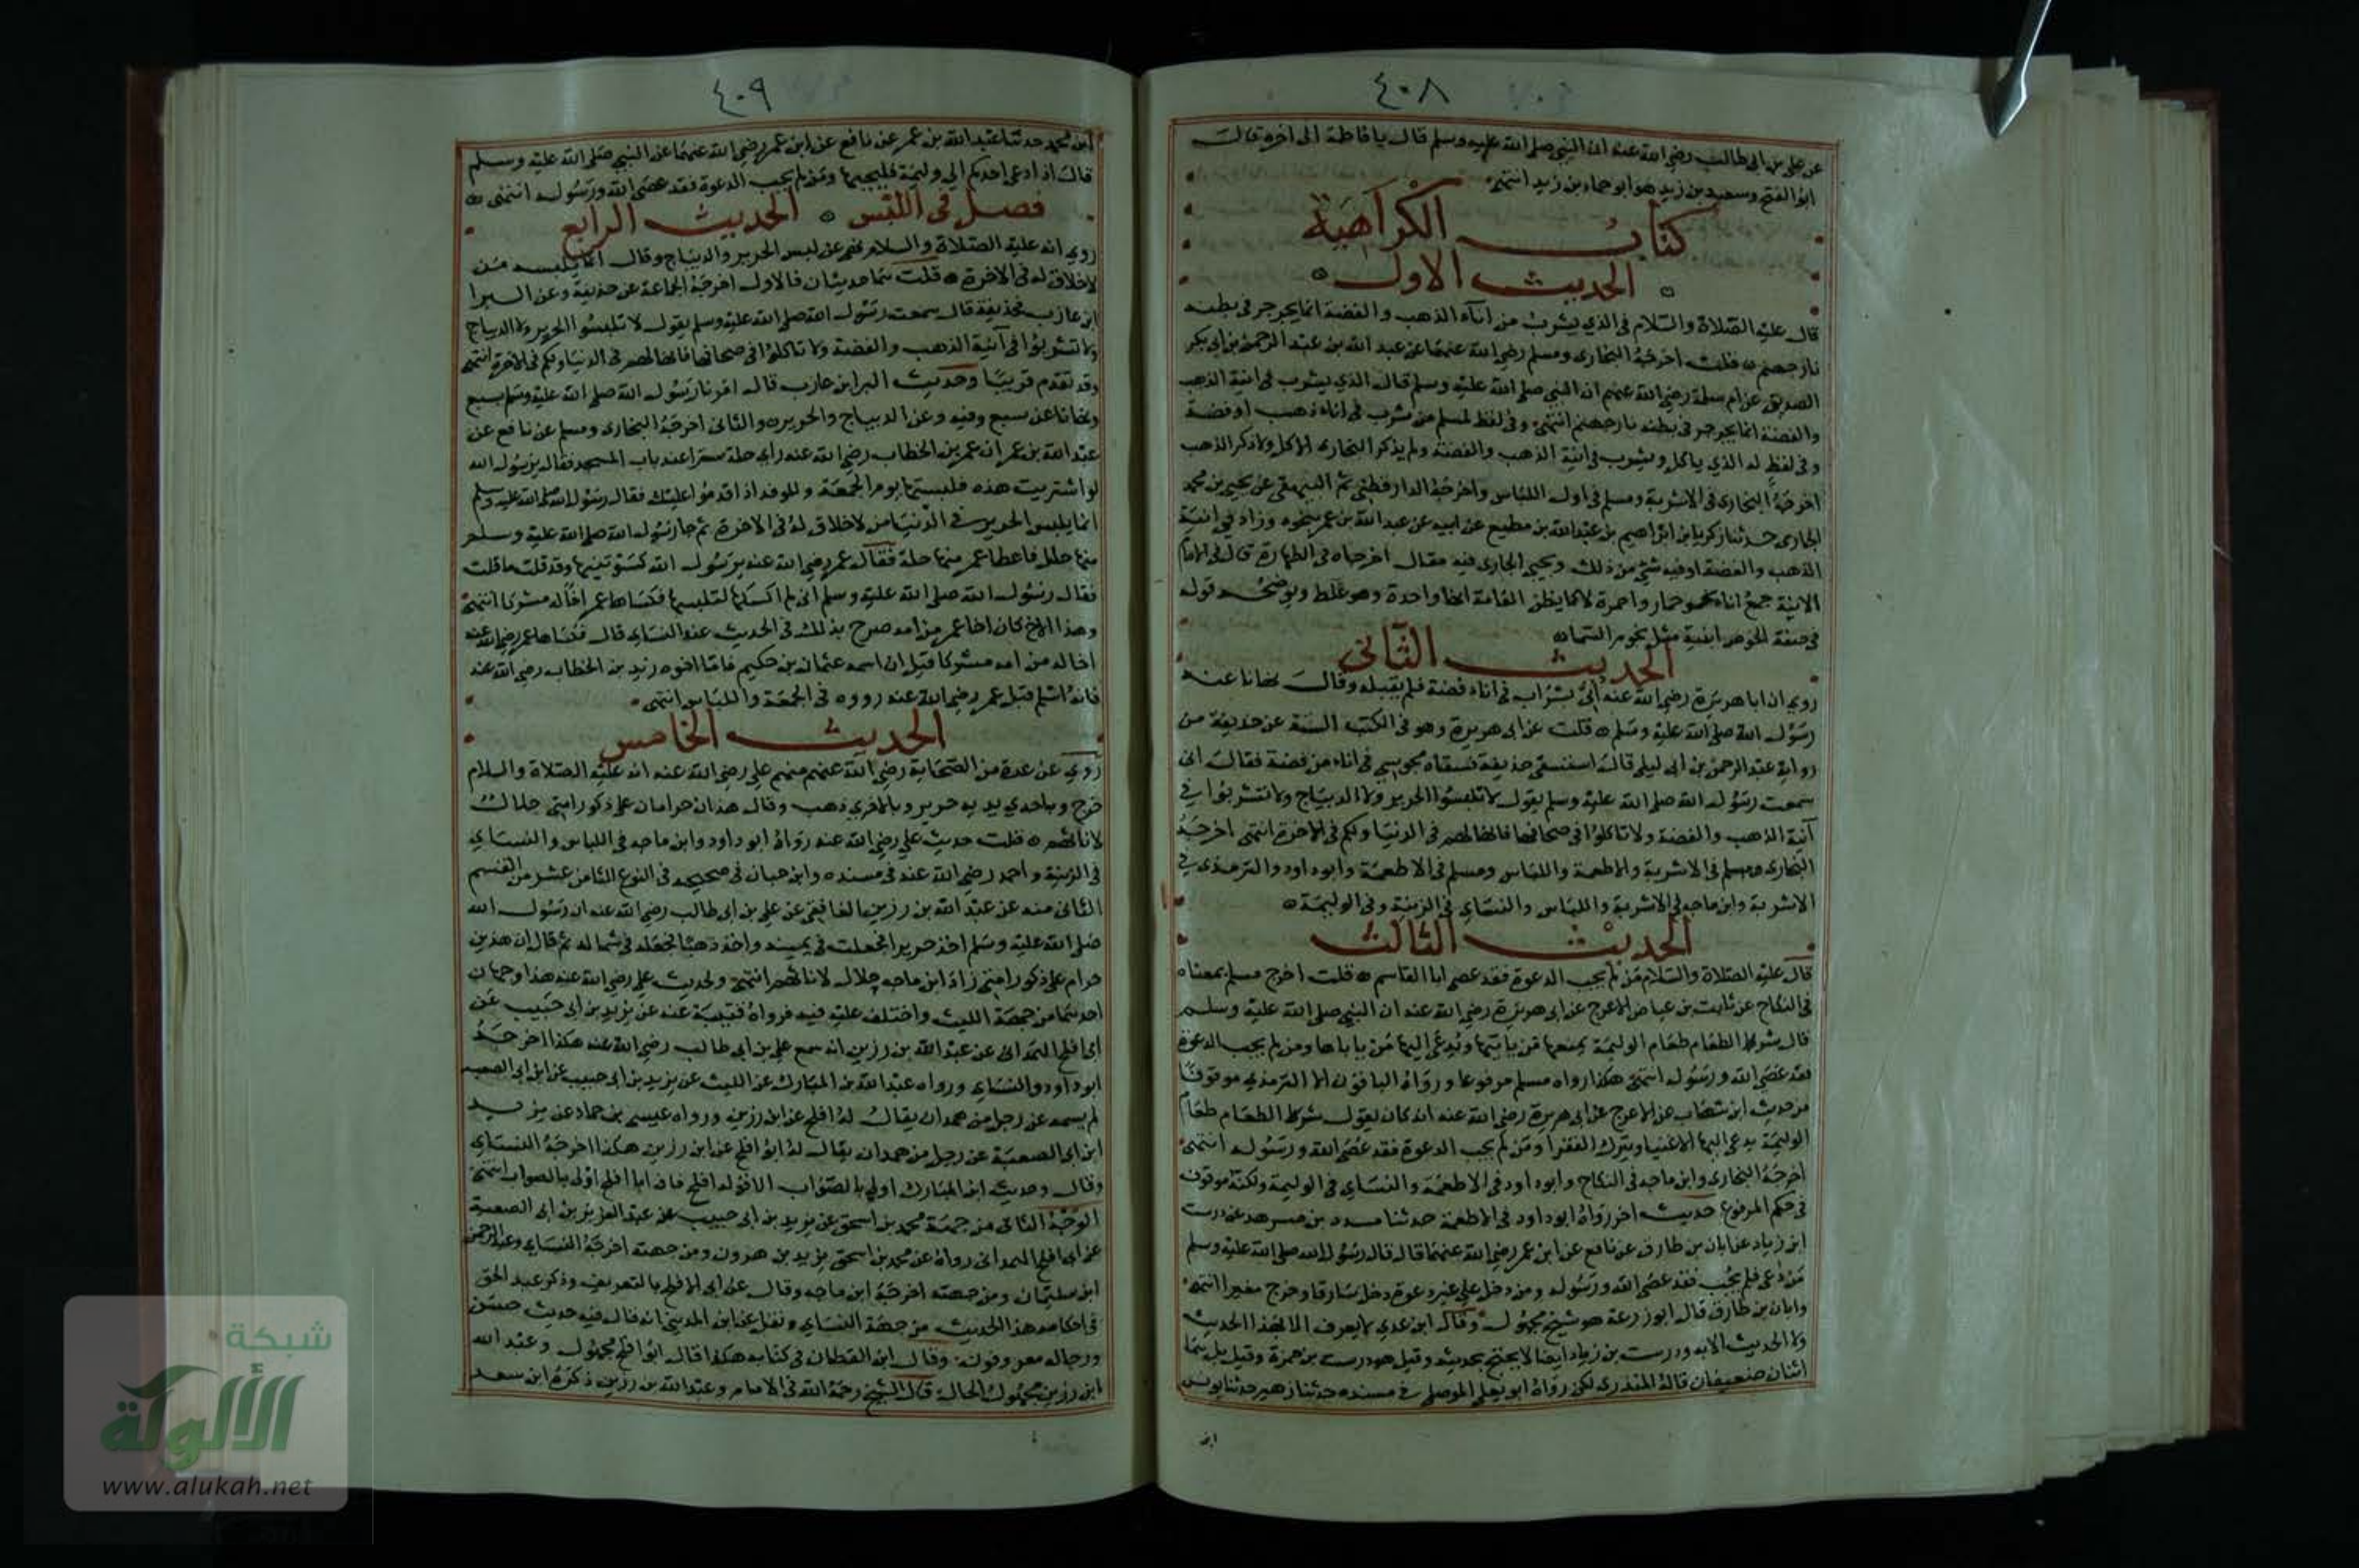 ٤٠٨
عن علي بن ابي طالب رضي الله عنه ان النبي صلى الله عليه وسلم قال يا فاطمة الى اخره قال
ابو الفتح وسعيد بن زيد هو ابو حماد بن زيد انتهى
كتاب الكراهية
الحديث الاول
قال عليه الصلاة والسلام في الذي يشرب من آناء الذهب والفضة انما يجرجر في بطنه
نار جهنم قلت اخرجه البخاري ومسلم رضي الله عنهما عن عبد الله بن عبد الرحمن بن ابي بكر
الصديق عن ام سلمة رضي الله عنهم ان النبي صلى الله عليه وسلم قال الذي يشرب في انية الذهب
والفضة انما يجرجر في بطنه نار جهنم انتهى وفي لفظ لمسلم من شرب في اناء ذهب او فضة
وفي لفظ له الذي ياكل ويشرب في انية الذهب والفضة ولم يذكر البخاري الاكل ولا ذكر الذهب
اخرجه البخاري في الاشربة ومسلم في اول اللباس واخرجه الدارقطني ثم البيهقي عن يحيى بن محمد
الجاري حدثنا زكريا بن ابراهيم بن عبد الله بن مطيع عن ابيه عن عبد الله بن عمر بنحوه وزاد في انية
الذهب والفضة او فيه شئ من ذلك ويحيى الجاري فيه مقال اخرجاه في الطهارة قال في الامام
الانية جمع اناء نحو حمار واحمرة لا كما يظن العامة انها واحدة وهو غلط ويوضحه قوله
في صفة الحوض ابنية مثل نجوم السماء
الحديث الثاني
روي ان ابا هريرة رضي الله عنه أتى بشراب في اناء فضة فلم يقبله وقال نهانا عنه
رسول الله صلى الله عليه وسلم قلت عن ابي هريرة وهو في الكتب الستة عن حذيفة من
رواية عبد الرحمن بن ابي ليلى قال استسقى حذيفة فسقاه مجوسي في اناء من فضة فقال اني
سمعت رسول الله صلى الله عليه وسلم يقول لا تلبسوا الحرير ولا الديباج ولا تشربوا في
آنية الذهب والفضة ولا تاكلوا في صحافها فانها لهم في الدنيا ولكم في الاخرة انتهى اخرجه
البخاري ومسلم في الاشربة والاطعمة واللباس ومسلم في الاطعمة وابو داود والترمذي في
الاشربة وابن ماجه في الاشربة واللباس والنساي في الزينة وفي الوليمة
الحديث الثالث
قال عليه الصلاة والسلام من لم يجب الدعوة فقد عصى ابا القاسم قلت اخرج مسلم بمعناه
في النكاح عن ثابت بن عياض الاعرج عن ابي هريرة رضي الله عنه ان النبي صلى الله عليه وسلم
قال شر الطعام طعام الوليمة يمنعها من ياتيها ويدعى اليها من ياباها ومن لم يجب الدعوة
فقد عصى الله ورسوله انتهى هكذا رواه مسلم مرفوعا ورواه الباقون الا الترمذي موقوفا
من حديث ابن شهاب عن الاعرج عن ابي هريرة رضي الله عنه انه كان يقول شر الطعام طعام
الوليمة يدعى اليها الاغنيا ويترك الفقرا ومن لم يجب الدعوة فقد عصى الله ورسوله انتهى
اخرجه البخاري وابن ماجه في النكاح وابو داود في الاطعمة والنساي في الوليمة ولكنه موقوف
في حكم المرفوع حديث اخر رواه ابو داود في الاطعمة حدثنا مسدد بن مسرهد عن درست
ابن زياد عن ابان بن طارق عن نافع عن ابن عمر رضي الله عنهما قال قال رسول الله صلى الله عليه وسلم
من دعى فلم يجب فقد عصى الله ورسوله ومن دخل على غير دعوة دخل سارقا وخرج مغيرا انتهى
وابان بن طارق قال ابو زرعة هو شيخ مجهول وقال ابن عدي لا يعرف الا بهذا الحديث
ولا الحديث الا به ودرست بن زياد ايضا لا يحتج بحديثه وقيل هو درست بن حمزة وقيل بل هما
اثنان ضعيفان قاله المنذري لكن رواه ابو يعلى الموصلي في مسنده حدثنا زهير حدثنا يونس
ابن
٤٠٩
ابن محمد حدثنا عبد الله بن عمر عن نافع عن ابن عمر رضي الله عنهما عن النبي صلى الله عليه وسلم
قال اذا دعى احدكم الى وليمة فليجبها ومن لم يجب الدعوة فقد عصى الله ورسوله انتهى
فصل في اللبس الحديث الرابع
روي انه عليه الصلاة والسلام نهى عن لبس الحرير والديباج وقال انما يلبسه من
لا خلاق له في الاخرة قلت هما حديثان فالاول اخرجه الجماعة عن حذيفة وعن البرا
ابن عازب فحذيفة قال سمعت رسول الله صلى الله عليه وسلم يقول لا تلبسوا الحرير ولا الديباج
ولا تشربوا في آنية الذهب والفضة ولا تاكلوا في صحافها فانها لهم في الدنيا ولكم في الاخرة انتهى
وقد تقدم قريبا وحديث البرا بن عازب قال امرنا رسول الله صلى الله عليه وسلم بسبع
ونهانا عن سبع وفيه وعن الديباج والحرير والثاني اخرجه البخاري ومسلم عن نافع عن
عبد الله بن عمر ان عمر بن الخطاب رضي الله عنه راى حلة سيرا عند باب المسجد فقال يرسول الله
لو اشتريت هذه فلبستها يوم الجمعة وللوفد اذا قدموا عليك فقال رسول الله صلى الله عليه وسلم
انما يلبس الحرير في الدنيا من لا خلاق له في الاخرة ثم جا رسول الله صلى الله عليه وسلم
منها حلل فاعطا عمر منها حلة فقال عمر رضي الله عنه يرسول الله كسوتنيها وقد قلت ما قلت
فقال رسول الله صلى الله عليه وسلم اني لم اكسكها لتلبسها فكساها عمر اخا له مشركا انتهى
وهذا الاخ كان اخا عمر من امه صرح بذلك في الحديث عند النساي قال فكساها عمر رضي الله عنه
اخا له من امه مشركا قيل ان اسمه عثمان بن حكيم فاما اخوه زيد بن الخطاب رضي الله عنه
فانه اسلم قبل عمر رضي الله عنه رووه في الجمعة واللباس انتهى
الحديث الخامس
روي عن عدة من الصحابة رضي الله عنهم منهم علي رضي الله عنه انه عليه الصلاة والسلام
خرج وباحدي يديه حرير وبالاخري ذهب وقال هذان حرامان على ذكور امتي حلال
لاناثهم قلت حديث علي رضي الله عنه رواه ابو داود وابن ماجه في اللباس والنساي
في الزينة واحمد رضي الله عنه في مسنده وابن حبان في صحيحه في النوع الثامن عشر من القسم
الثاني منه عن عبد الله بن رزين الغافقي عن علي بن ابي طالب رضي الله عنه ان رسول الله
صلى الله عليه وسلم اخذ حريرا فجعلت في يمينه واخذ ذهبا فجعله في شماله ثم قال ان هذين
حرام على ذكور امتي زاد ابن ماجه حلال لاناثهم انتهى ولحديث علي رضي الله عنه هذا وجهان
احدهما من جهة الليث واختلف عليه فيه فرواه قتيبة عنه عن يزيد بن ابي حبيب عن
ابي افلح الهمداني عن عبد الله بن رزين انه سمع علي بن ابي طالب رضي الله عنه هكذا اخرجه
ابو داود والنساي ورواه عبد الله بن المبارك عن الليث عن يزيد بن ابي حبيب عن ابن ابي الصعبه
لم يسمه عن رجل من همدان يقال له افلح عن ابن رزين ورواه عيسى بن حماد عن يزيد
ابن ابي الصعبة عن رجل من همدان يقال له ابو افلح عن ابن رزين هكذا اخرجه النساي
وقال وحديث ابن المبارك اولى بالصواب الا قوله افلح فان ابا افلح اولى بالصواب انتهى
الوجه الثاني من جهة محمد بن اسحق عن يزيد بن ابي حبيب عن عبد العزيز بن ابي الصعبة
عن ابي افلح الهمداني رواه عن محمد بن اسحق يزيد بن هرون ومن جهته اخرجه النساي وعبد الرحمن
ابن سليمان ومن جهته اخرجه ابن ماجه وقال عن ابي الافلح بالتعريف وذكر عبد الحق
في احكامه هذا الحديث من جهة النساي ونقل عن ابن المديني انه قال فيه حديث حسن
ورجاله معروفون وقال ابن القطان في كتابه هكذا قال ابو افلح مجهول وعبد الله
ابن رزين مجهول الحال قال الشيخ رحمة الله في الامام وعبد الله بن رزين ذكره ابن سعد
شبكة
الألوكة
www.alukah.net